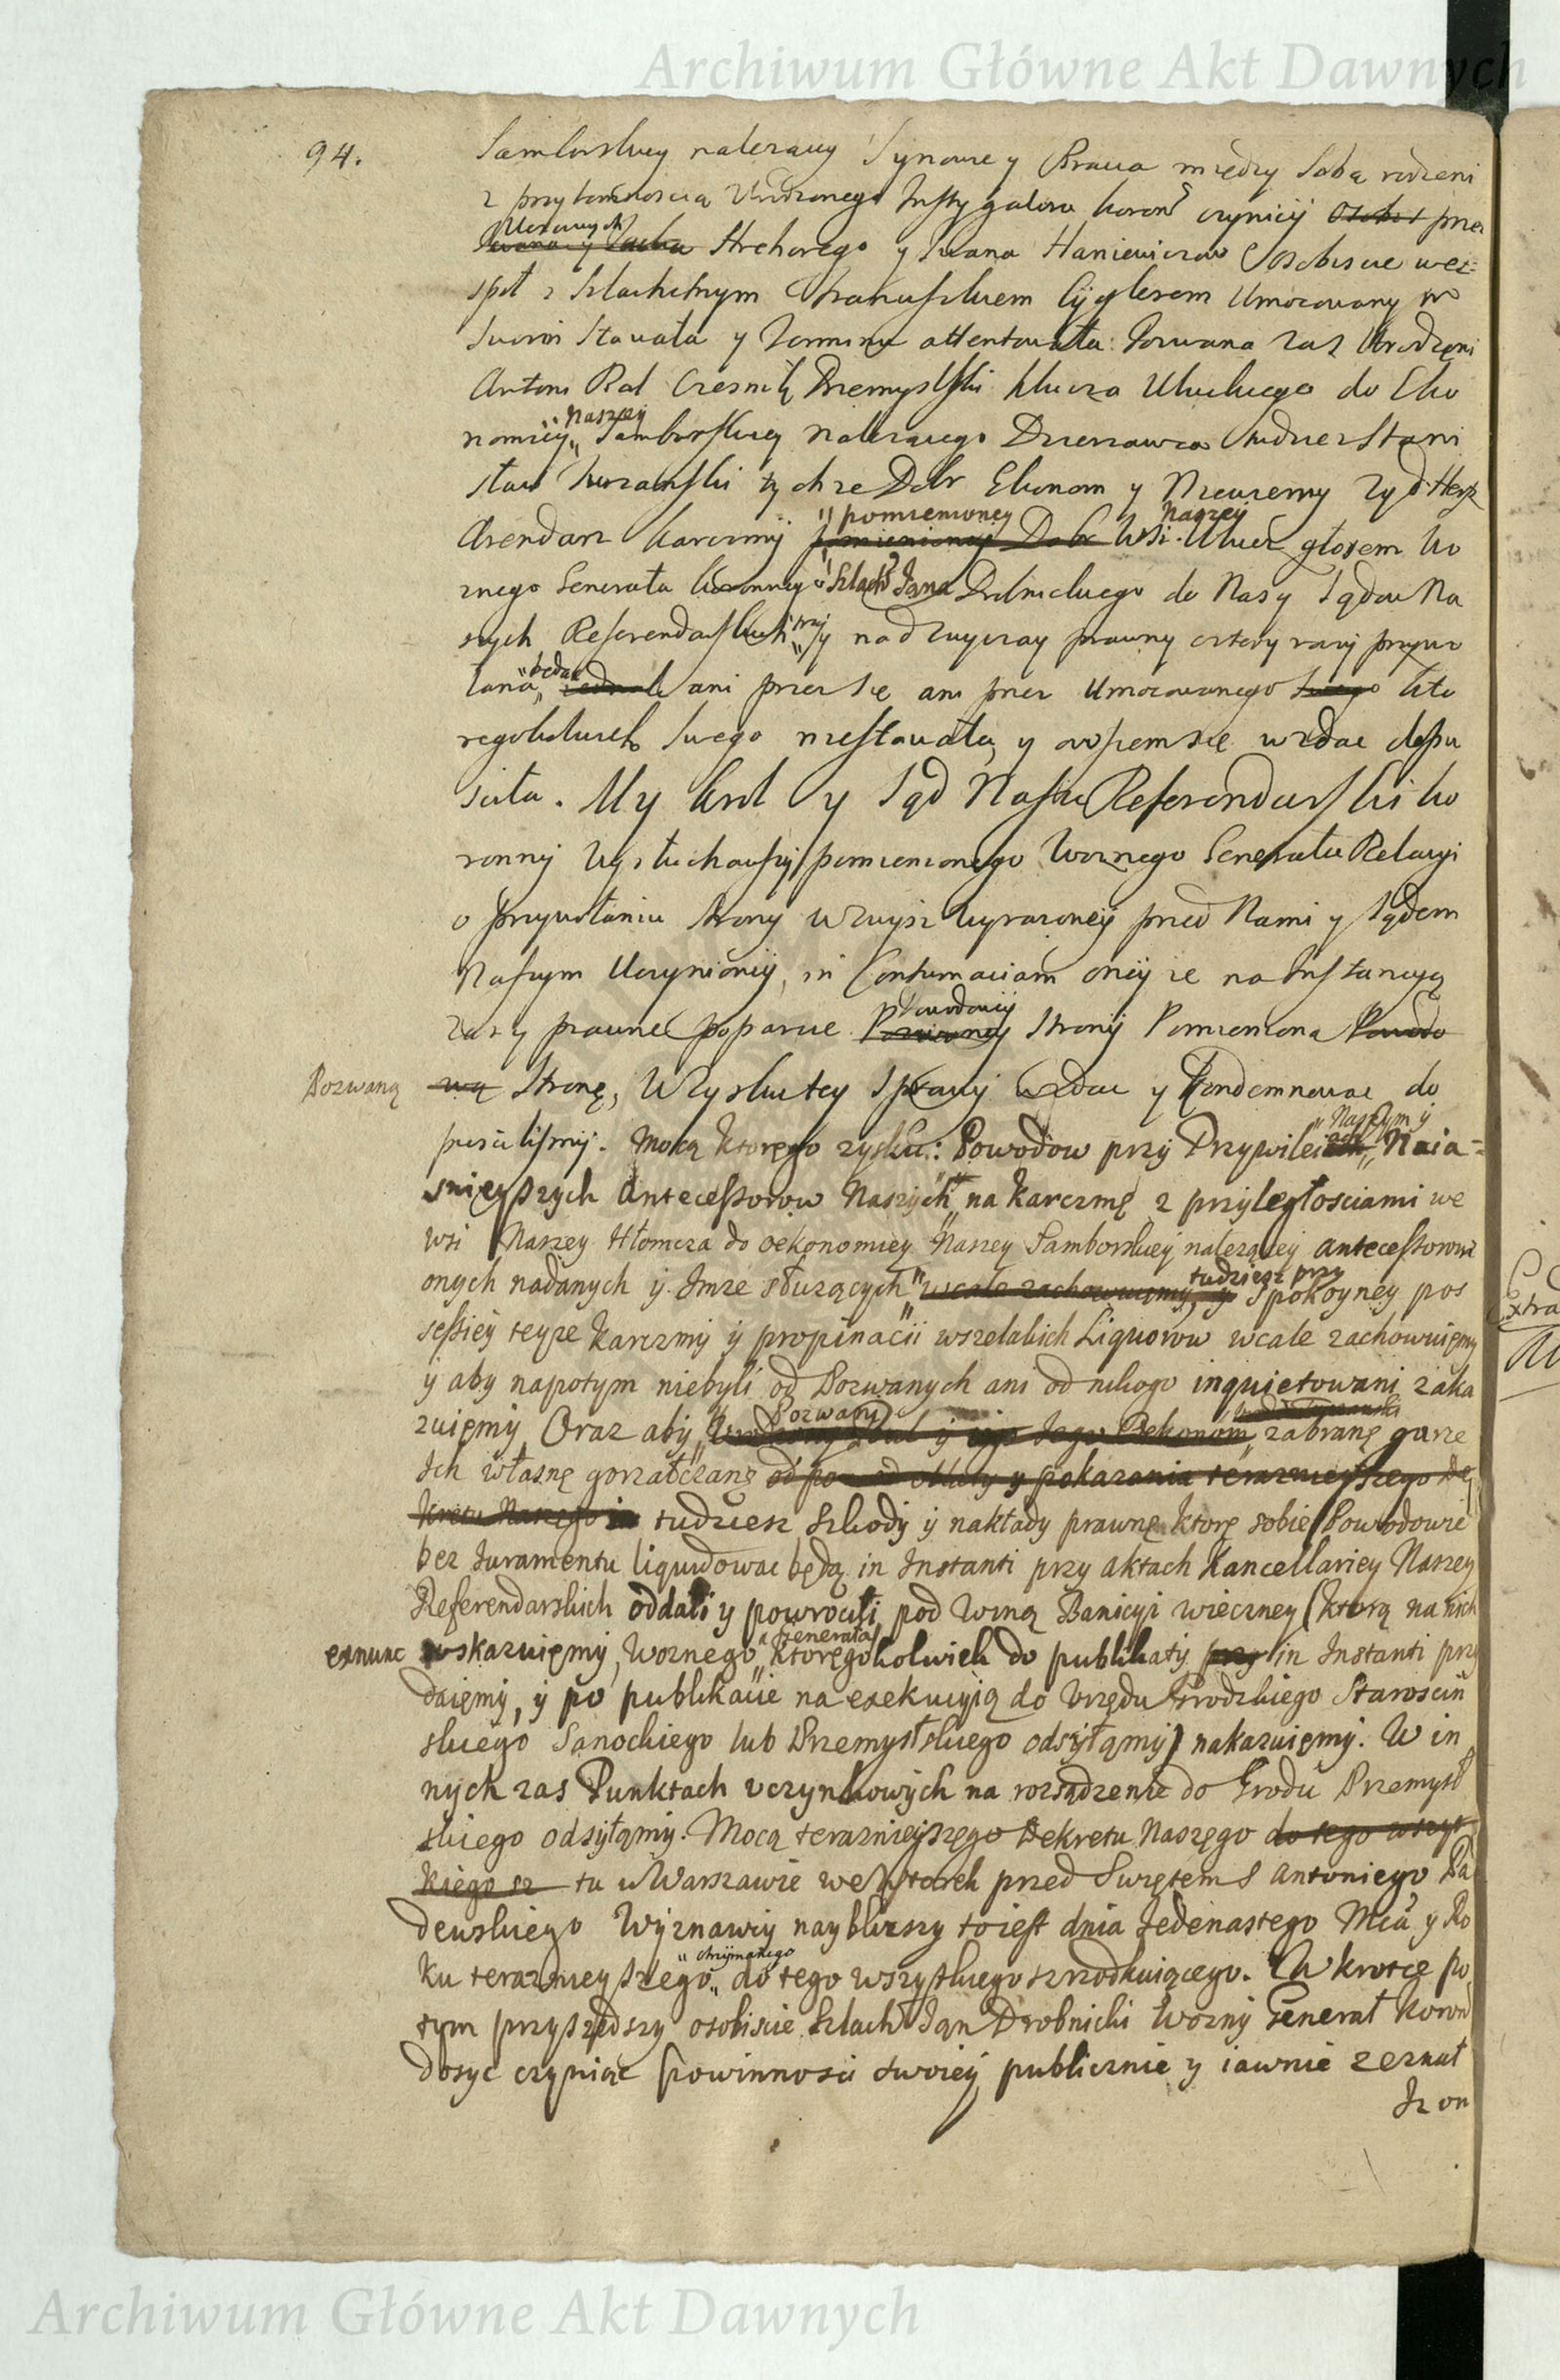 Archiwum Główne Akt Dawnych
94.
Samborskiey nalezący Synowie y Bracia między Sobą rodzeni
z przytomnoscią Urodzonego Instygatora Koron czyniąy przez
Uczciwych
Hrehorego y Iwana Haniewiczow Osobiscie wes=
społ z Szlachetnym Franciszkiem Cyglerem Umocowany
Swoim Stawała y Termin attentowała: Pozwana zas Urodzeni
Antoni Ral Czesnik Przemyslski klucza Uluckiego do Eko
nomiey „Naszey Samborskiey nalezącego Dzierzawca tudziez Stani
sław tychze Dobr Ekonom y Niewierny Zyd Hersz
Arendarz karczmy „pomienioney Wsi Naszey Ulucz głosem Wo
znego Generała Koronnego Szlach Jana Drobnickiego do Nas y Sądu Na
szych Referendarskich y nad zwyczay prawny cztery razy przywo
łana „będąc ani przez się ani przez Umocowanego Kto
regokolwiek Swego niestawała, y owszem się wzdac dopu
sciła. My Krol y Sąd Nasz Referendarski Ko
ronny Wysłuchawszy pomienionego Woznego Generała Relacyi
o przywołaniu Strony wzwysz wyrazoney przed Nami y Sądem
Naszym Uczynioney, in Contumaciam oney ze na Instancyą
zas y prawne poparcie Powodowey Strony Pomieniona
Pozwaną Stronę, W Zysku tey Sprawy wzdac y Kondemnowac do
puscilismy. Mocą ktorego zysku: Powodow przy Przywileiach „Naszym y Naia=
snieyszych Antecessorow Naszych „na karczmę z przyległosciami we
wsi Naszey Hłomcza do oekonomiey Naszey Samborskiey nalezącey antecessorom
onych nadanych y Imze słuzących „tudziesz przy Spokoyney pos
sessiey teyze karczmy y propinacii wszelakich Liquorow wcale zachowuiemy
y aby napotym niebyli od Pozwanych ani od nikogo inquietowani zaka
zuiemy Oraz aby „Pozwani zabrane garce
Ich własne gorzałczane
tudziesz szkody y nakłady prawne ktore sobie Powodowie
bez Juramentu liquidowac będą in Instanti przy aktach Kancellariey Naszey
Referendarskich oddali y powrocili pod winą Banicyi wieczney (ktorą na nich
exnunc wskazuiemy, woznego „Generała ktoregokolwiek do publikaty in Instanti przy
daiemy, y po publikacie na exekucyią do Urzędu Grodzkiego Staroscin
skiego Sanockiego lub Przemyslskiego odsyłamy) nakazuiemy. W in
nych zas Punktach uczynkowych na rozsądzenie do Grodu Przemysl
skiego odsyłamy. Mocą terazniejszego Dekretu Naszego do tego wszyt
kiego sz tu w Warszawie we Wtorek przed Swiętem S Antoniego Pa
dewskiego Wyznawcy naybliszy toiest dnia Jedenastego Mca y Ro
ku terazniejszego „otrzymanego do tego wszystkiego szrzodkuiącego. Wkrotce po
tym przyszedszy osobiscie Szlach Jan Drobnicki Wozny Generał Koron
dosyc czyniąc powinnosci swoiey publicznie y iawnie zeznał
Iz on
Archiwum Główne Akt Dawnych